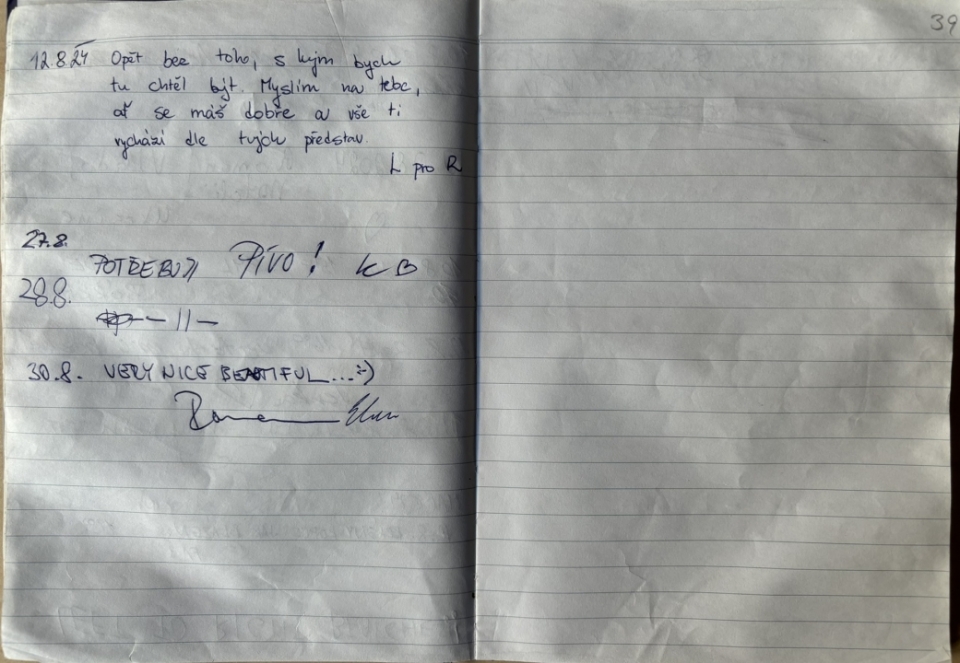 39
12.8.24 Opět bez toho, s kým bych
tu chtěl být. Myslím na tebe,
ať se máš dobře a vše ti
vychází dle tvých představ.
L pro R
27.8.
POTŘEBUJI PIVO! KB
28.8.
— 11 —
30.8. VERY NICE BEATIFUL...:-)